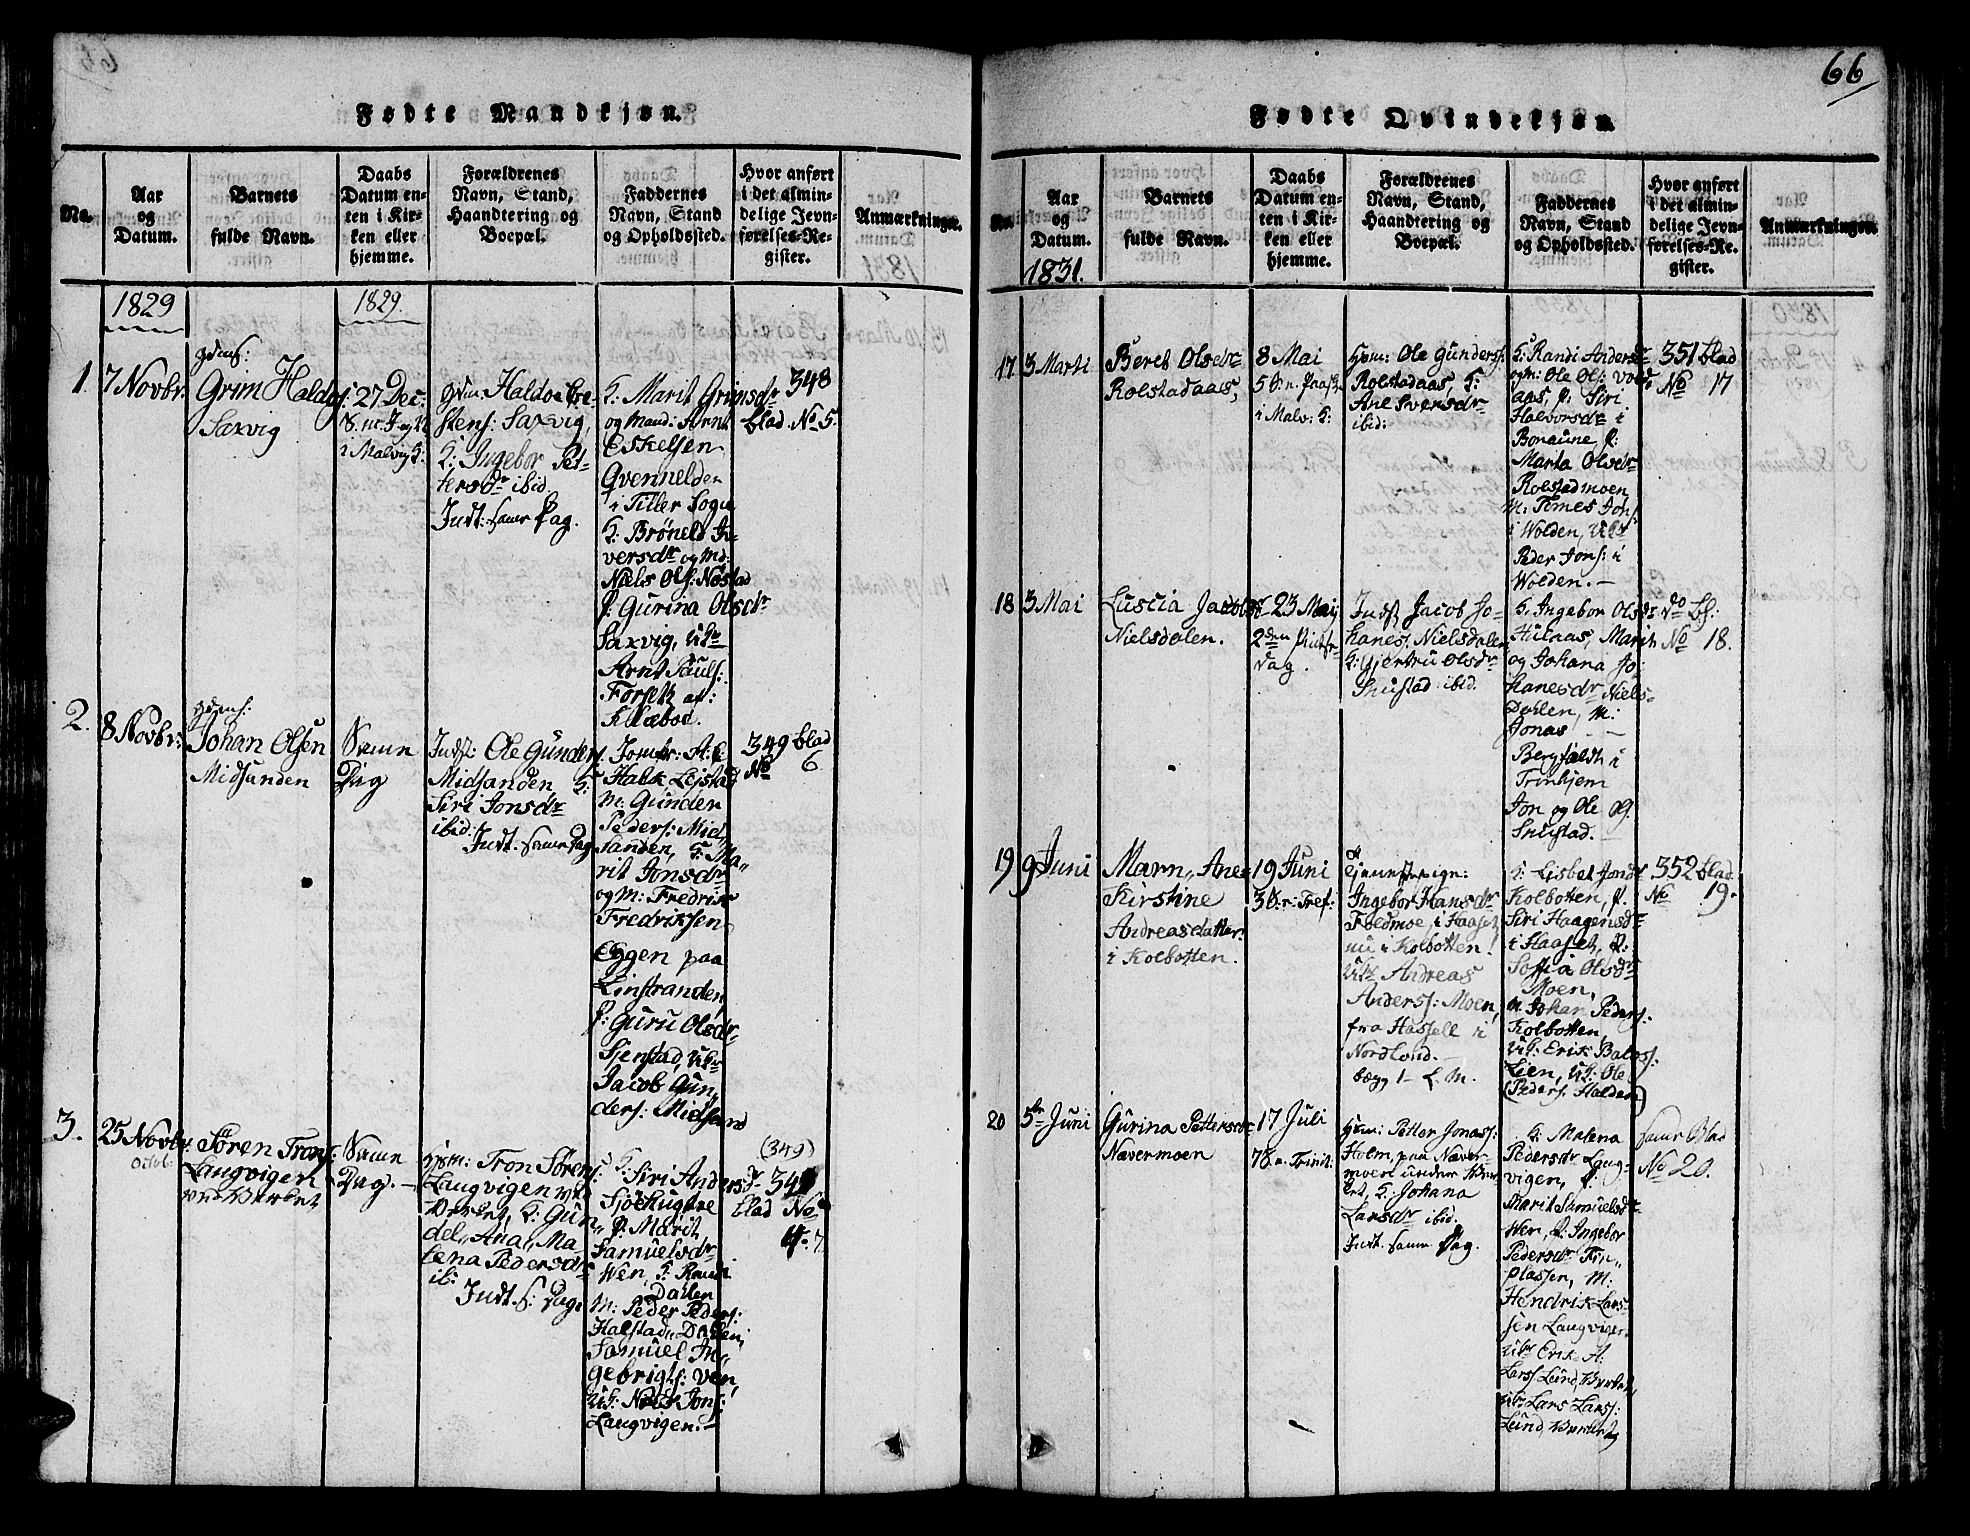 66
Fødte Mandkjøn.
No.
Aar
og
Datum.
Barnets
fulde Navn.
Daabs
Datum en-
ten i Kir-
ken eller
hjemme.
Forældrenes
Navn, Stand,
Haandtering og
Boepæl.
Faddernes
Navn, Stand
og Opholdssted.
Hvor anført
i det almin-
delige Jevn-
førelses-Re-
gister.
Anmærkninger.
1829
1829.
1.
7 Novbr.
Grim Haldos:
Saxvig
27 Dec:
i Malvig K:
Haldo
stens: Saxvig,
K: Ingebor Pet-
tersdr ibid
Indt: samme Dag.
K: Marit Grimsdr
og Mand: Arnt
Eskelsen
Qvennelden
i Tiller Sogn
K: Brøneld I-
versdr og Md:
Niels Ols: Nøstad
P: Gurina Olsdr
Saxvig, Uk:
Arnt Pauls:
Forseth af:
Klæboe.
348
blad. No 5.
2.
8 Novbr:
Johan Olsen
Midsanden
Samme
Dag
Inds: Ole Gunders:
Midsanden, K:
Siri Jonsdr
ibid:
Indt. samme Dag
Jomfr: A: E
Halck Lejstad
M: Gunder
Peders: Mid-
sanden, K: Ma-
rit Jonsdr
og M: Fredrik
Fredriksen
Eggen paa
Linstranden,
P: Guru Olsdr
Sjenstad, Uk:
Jacob Gun-
ders: Midsand
349 blad
No 6
3.
25 Novbr:
Octob:
Søren Trons:
Langvigen
Samme
Dag. –
Hsm: Tron Sørens:
Langvigen
K: Gun-
del,, Ana,, Ma-
lena Pedersdr
ib:
Indt. s: Dag.
K: Siri Andersdr
P: Marit
Samuelsdr
Wen, K: Randi
Dahlen
M: Peder Peders:
Halstad,, Dahlen,
Samuel In-
gebrigts: Ven,
Uk: Jons:
Langvigen. –
(349)
blad No
7
Fødte Qvindekjøn.
No.
Aar
og
Datum.
1831.
Barnets
fulde Navn.
Daabs
Datum en-
ten i Kir-
ken eller
hjemme.
Forældrenes
Navn, Stand,
Haandtering og
Boepæl.
Faddernes
Navn, Stand
og Opholdssted.
Hvor anført
i det almin-
delige Jevn-
førelses-Re-
gister.
Anmærkninger.
17
3 Marti
Beret Olsdr
Rolstadaas,
8 Mai
i Malv: K:
Hsm: Ole Gunders:
Rolstadaas, K:
Ane Svensdr
ibid:
K: Randi Andersdr
og M: Ole Ols:
aas, P: Siri
Halvorsdr i
Bonaune, P:
Marta Olsdr
Rolstadmoen
M: Tomes Jons:
i Wolden, Uk:
Peder Jons: i
Wolden. –
351 blad
No 17
18
3 Mai
Luscia Jacobsdr
Nielsdalen.
23 Mai
2den Pintse-
dag.
Inds: Jacob Jo-
hanes: Nielsdalen
K: Gjertru Olsdr
Snustad ibid.
K: Ingebor Olsdr
Hulaas, Marit
og Johana Jo-
hanesdr Niels-
Dalen, M:
Jonas
Bergfaldt i
Trinhjem
Jon og Ole Ols:
Snustad. –
do Bl:
No 18.
19
9 Juni
Maren,, Ane-
Kirstine
Andreasdatter
i Kolbotten.
19 Juni
Ingebor Hansdr
Foldmoe, i Haaset,
nu i Kolbotten!
Uk: Andreas
Anders: Moen,
fra Hassell i
Nordlond. –
K: Lisbet Jonsdr
Kolbotten, P.
Siri Haagensdr
i Haaset, P:
Soffia Olsdr
Moen,
M: Johan Peders:
Kolbotten,
Uk: Erik
Lien, Uk: Ole
Peders: Halden
352 blad
No 19.
20
5te Juni
Gurina Pettersdr
Nævermoen
17 Juli
7 S. e. Trinit:
Hsm: Petter Jonas:
Holm, paa Næver-
moen under
K: Johana
Larsdr ibid.
Indt. samme Dag.
K: Malena
Pedersdr Lang-
vigen, P.
Marit Samuelsdr
Wen, P: Ingebor
Pedersdr
plassen, M:
Hendrik Lars-
sen Langvigen
Uk: Erik A:
Lars: Lund,
Uk: Lars Lars:
Lund
samme Blad
No 20.